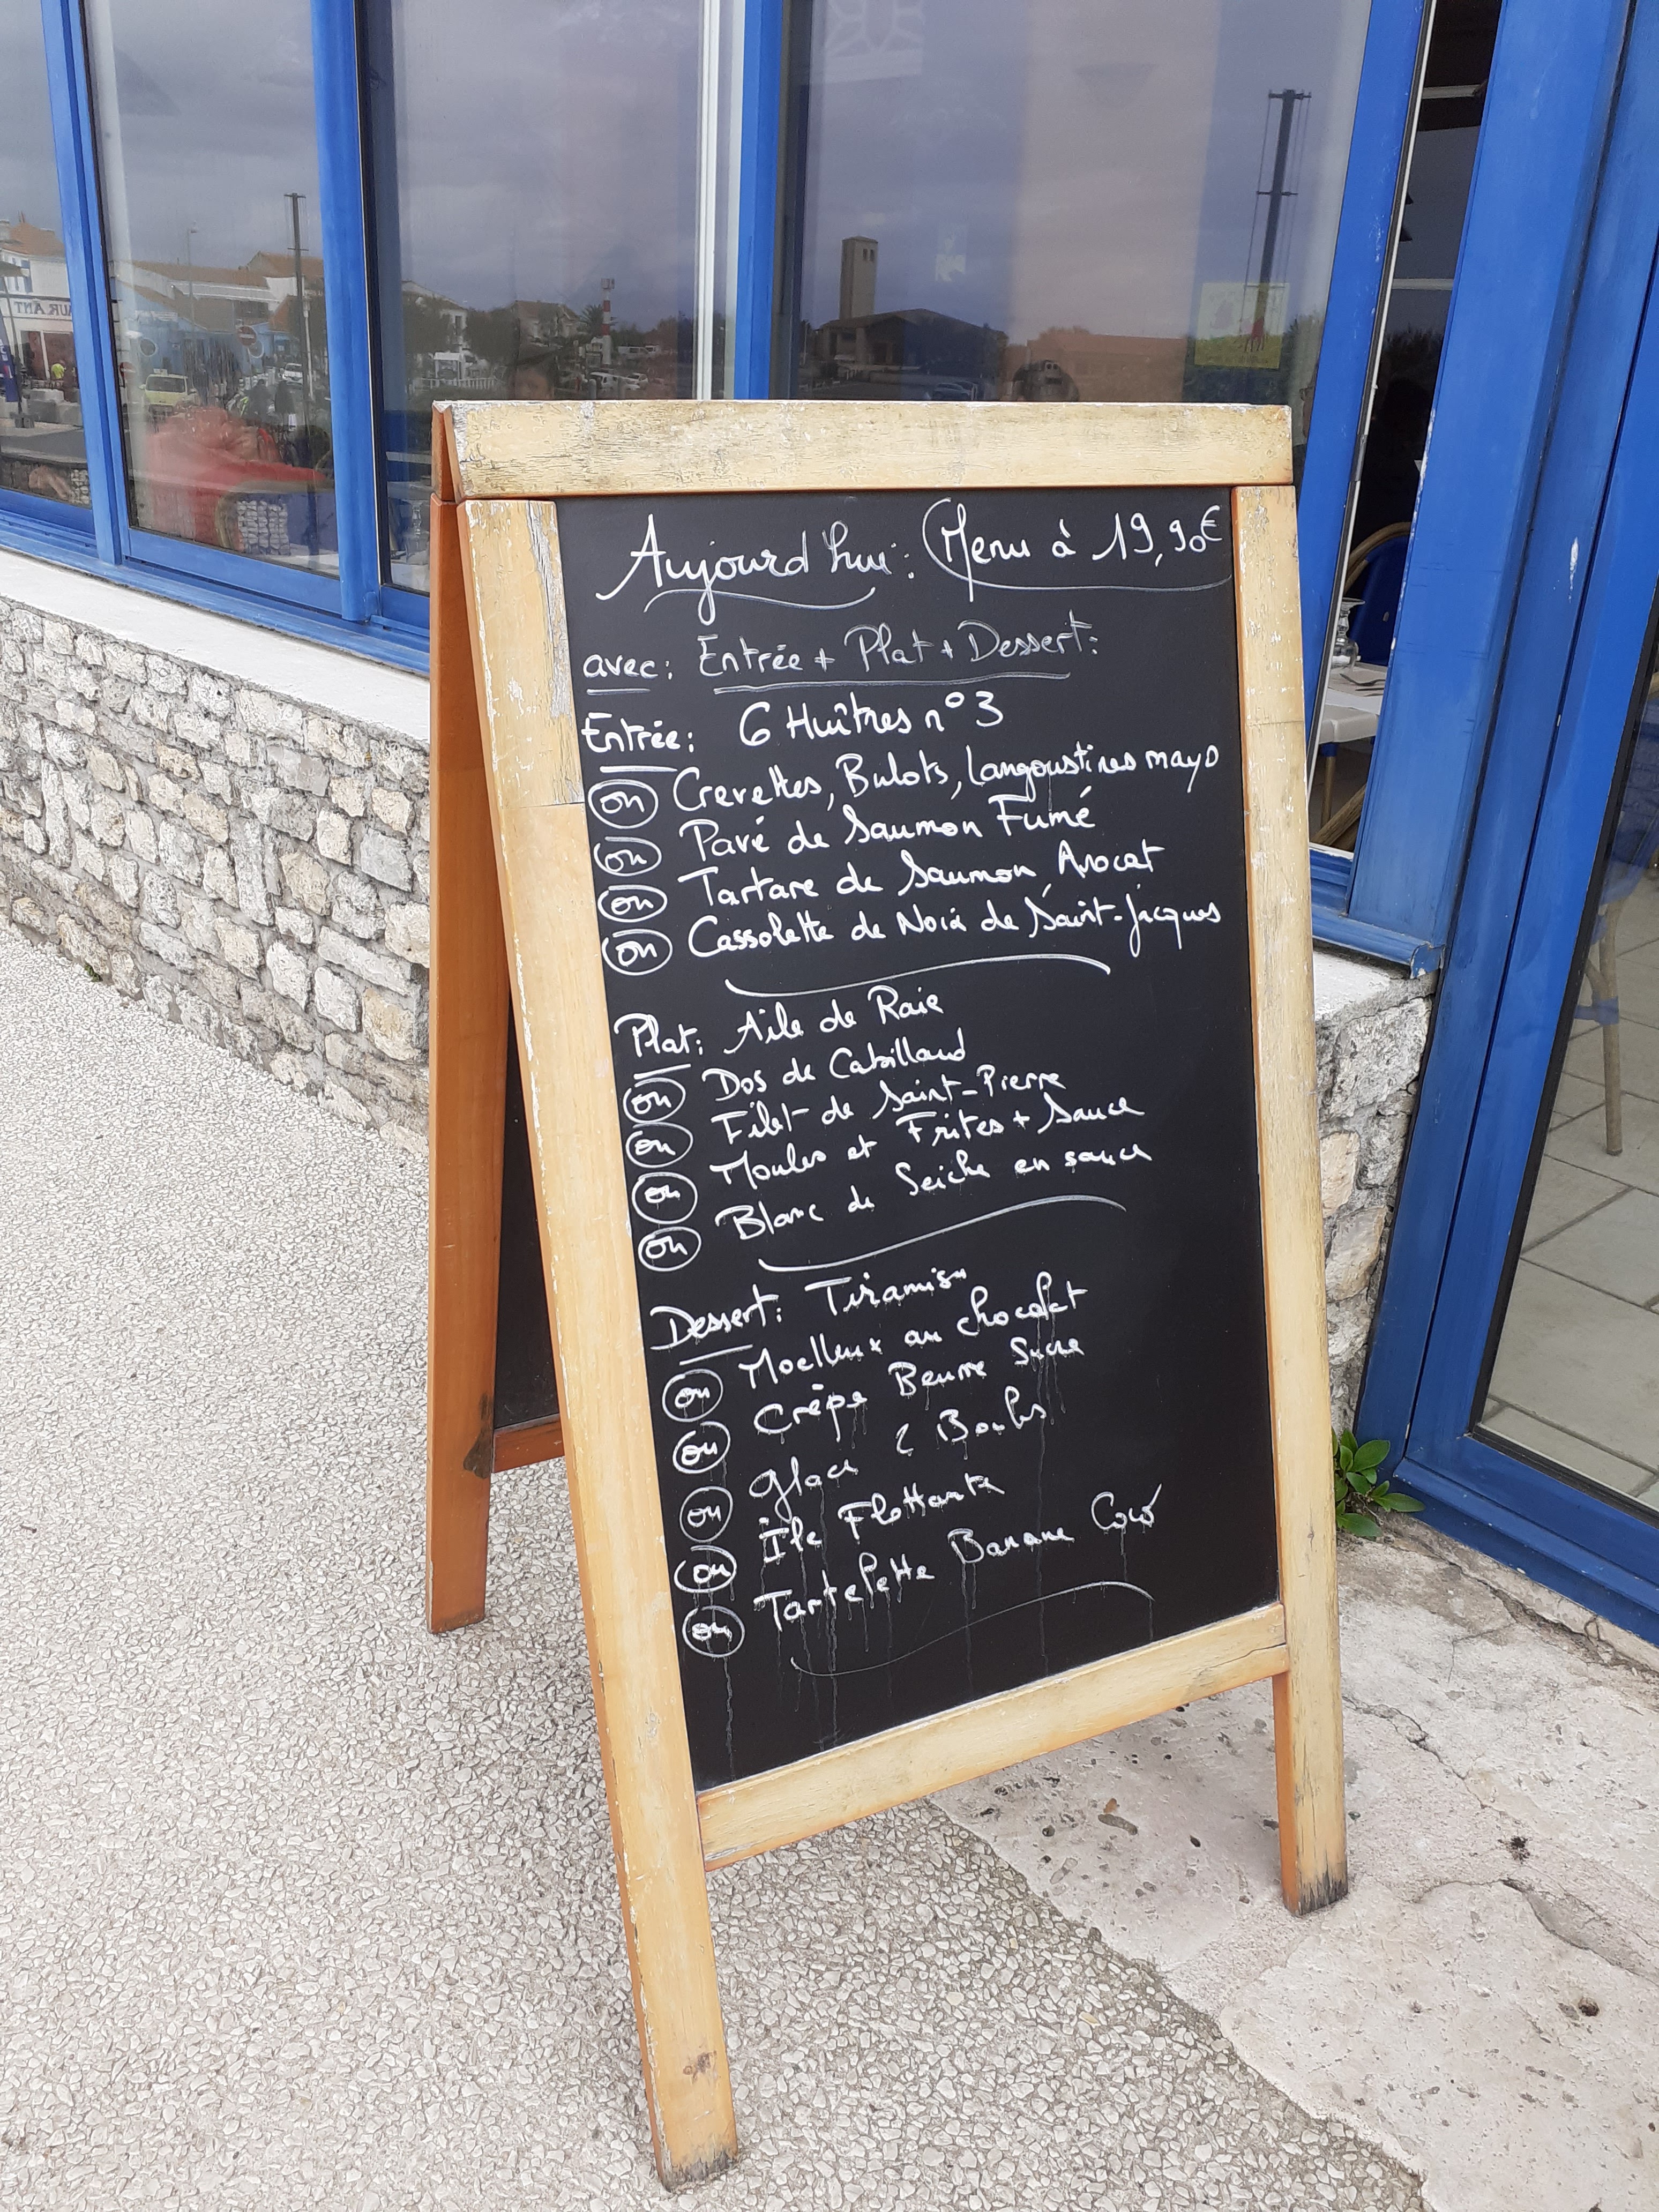 AURANT
Aujourd'hui: Menu à 19,90€
avec: Entrée + Plat + Dessert:
Entrée: 6 Huîtres n°3
ou Crevettes, Bulots, Langoustines mayo
ou Pavé de Saumon Fumé
ou Tartare de Saumon, Avocat
ou Cassolette de Noix de Saint-Jacques
Plat: Aile de Raie
ou Dos de Cabillaud
ou Filet de Saint-Pierre
ou Moules et Frites + Sauce
ou Blanc de Seiche en sauce
Dessert: Tiramisu
ou Moelleux au chocolat
ou Crêpe Beurre Sucre
ou Glace 2 Boules
ou Île Flottante
ou Tartelette Banane Coco